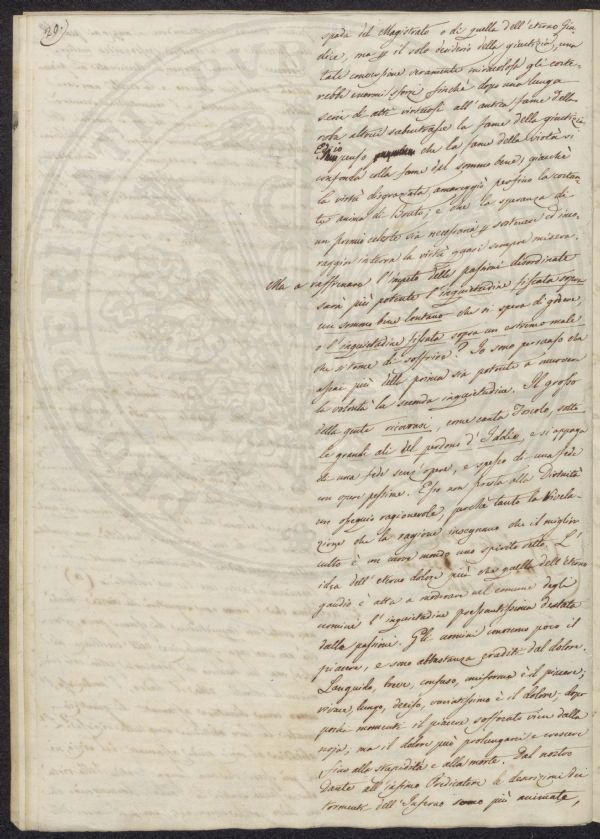 29.
spada del Magistrato o di quella dell'eterno Giu-
dice, ma il solo desiderio della giustizia, una
tale convinzione veramente miracolosa gli coste-
rebbe enormi sforzi finchè dopo una lunga
serie di atti virtuosi all'antica fame della
roba altrui subentrasse la fame della giustizia.
Ed io penso che la fame della virtù si
confonda colla fame del sommo bene; giacchè
la virtù disgraziata amareggiò perfino la costan-
te anima di Bruto; e che la speranza di
un premio celeste sia necessaria a sostenere ed inco-
raggire in terra la virtù quasi sempre misera.
Ma a raffrenare l'impeto delle passioni disordinate
sarà più potente l'inquietudine fissata sopra
un sommo bene lontano che si spera di godere,
o l'inquietudine fissata sopra un estremo male
che si teme di soffrire? Io sono persuaso che
assai più della prima sia potente a muovere
la volontà la seconda inquietudine. Il grosso
della gente ricovrasi, come canta Foscolo, sotto
le grandi ali del perdono d'Iddio, e si appaga
di una fede senz'opere, e spesso di una fede
con opere pessime. Esso non presta alla Divinità
un ossequio ragionevole, perchè tanto la Rivela-
zione che la ragione insegnano che il miglior
culto è un cuore mondo uno spirito retto. L'
idea dell'eterno dolore più che quella dell'eterno
gaudio è atta a moderare nel comune degli
uomini l'inquietudine pressantissima destata
dalle passioni. Gli uomini conoscono poco il
piacere, e sono abbastanza eruditi dal dolore.
Languido, breve, confuso, uniforme è il piacere;
vivace, lungo, deciso, variatissimo è il dolore; dopo
pochi momenti il piacere soffocato vien dalla
noja, ma il dolore può prolungarsi e crescere
fino alla stupidità e alla morte. Dal nostro
Dante all'infimo Predicatore le descrizioni dei
tormenti dell'Inferno sono più animate,